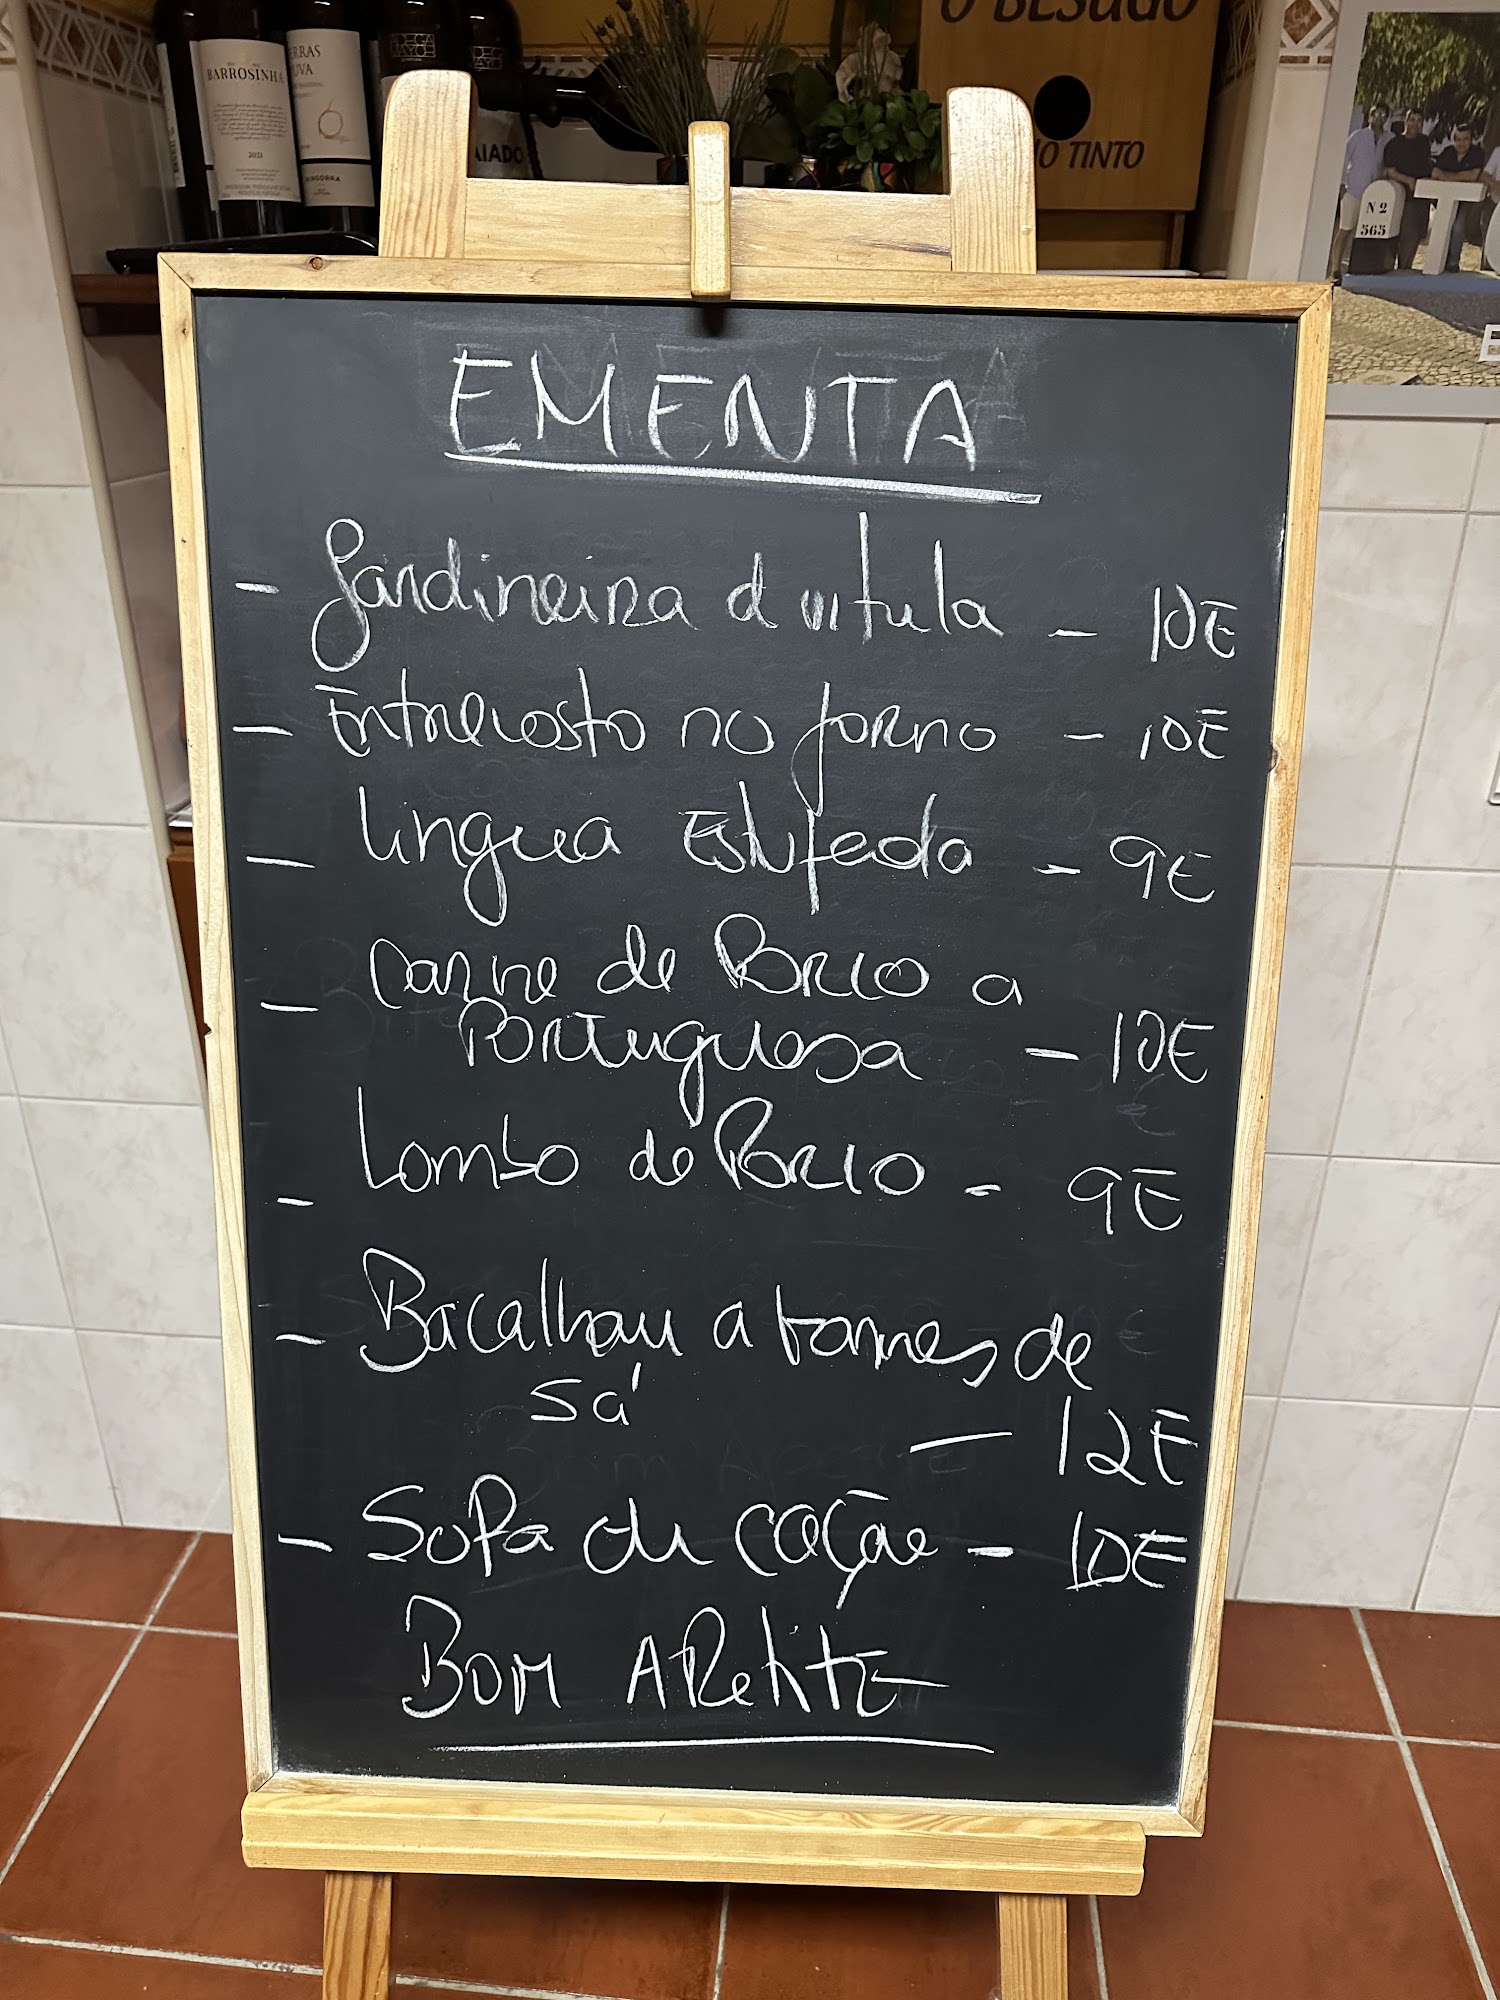 O BESUGO
BARROSINHA
2021
MINGORRA
AIADO
TINTO
N 2
565
EMENTA
- Jardineira d vitula - 10E
- Entrecosto no forno - 10E
- Lingua Estufada - 9E
- Carne de Porco a
Portuguesa - 10E
- Lombo de Porco - 9E
- Bacalhau a tomes de
sá - 12E
- Sopa de cação - 10E
BOM APetite